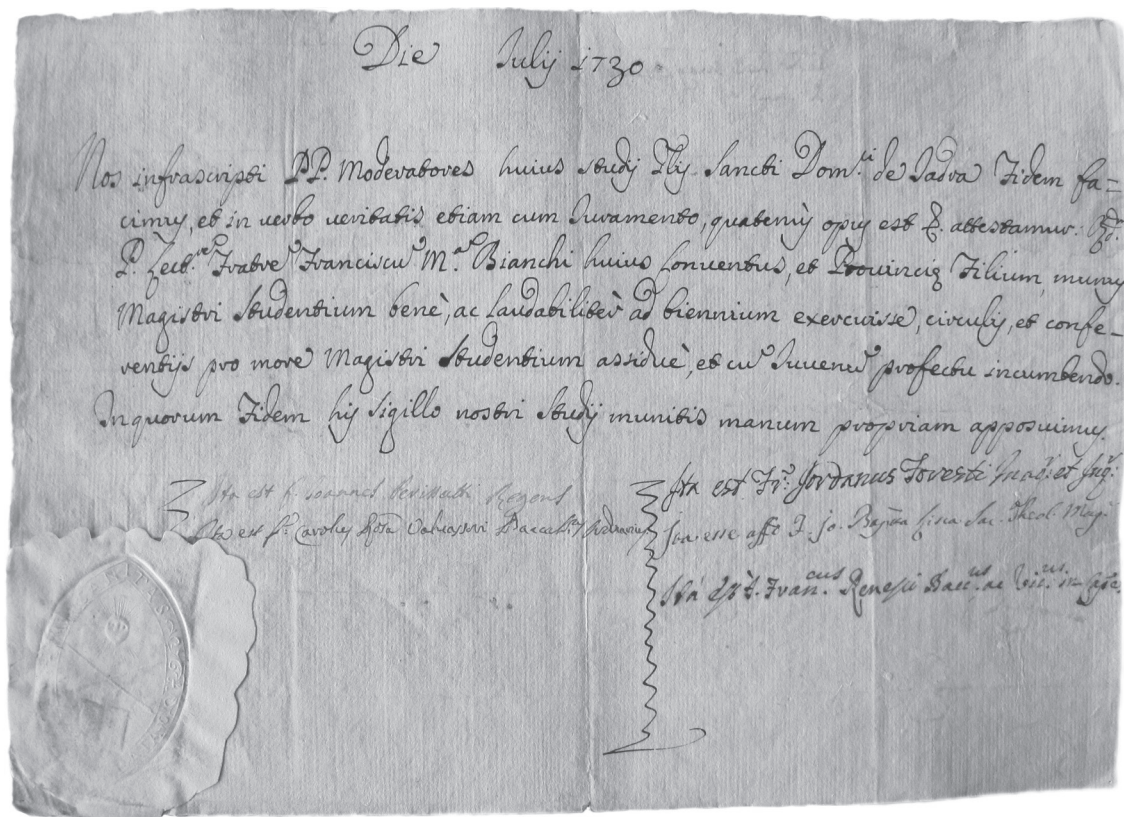 Die Julij 1730
Nos infrascripti PP. Moderatores huius studij Sancti Dom.ci de Jadra Fidem fa=
cimus, et in verbo veritatis etiam cum Juramento, quatenus opus est attestamur.
P. Lect.rem Fratrē Franciscū M.am Bianchi huius Conventus, et Provincię Filium, munus
Magistri Studentium benè, ac laudabilitèr ad biennium exercuisse, circulis, et confe–
rentijs pro more Magistri Studentium assiduè, et cū Juvenū profectu incumbendo.
In quorum Fidem his sigillo nostri studij munitis manum propriam apposuimus.
Ita est F. Joannes Regens
Ita est Fr. Carolus
Ita est Fr. Jordanus Foresti et
Ita esse
Ita est F. Fran.cus Renesii Bacc.us ac Vic.us in